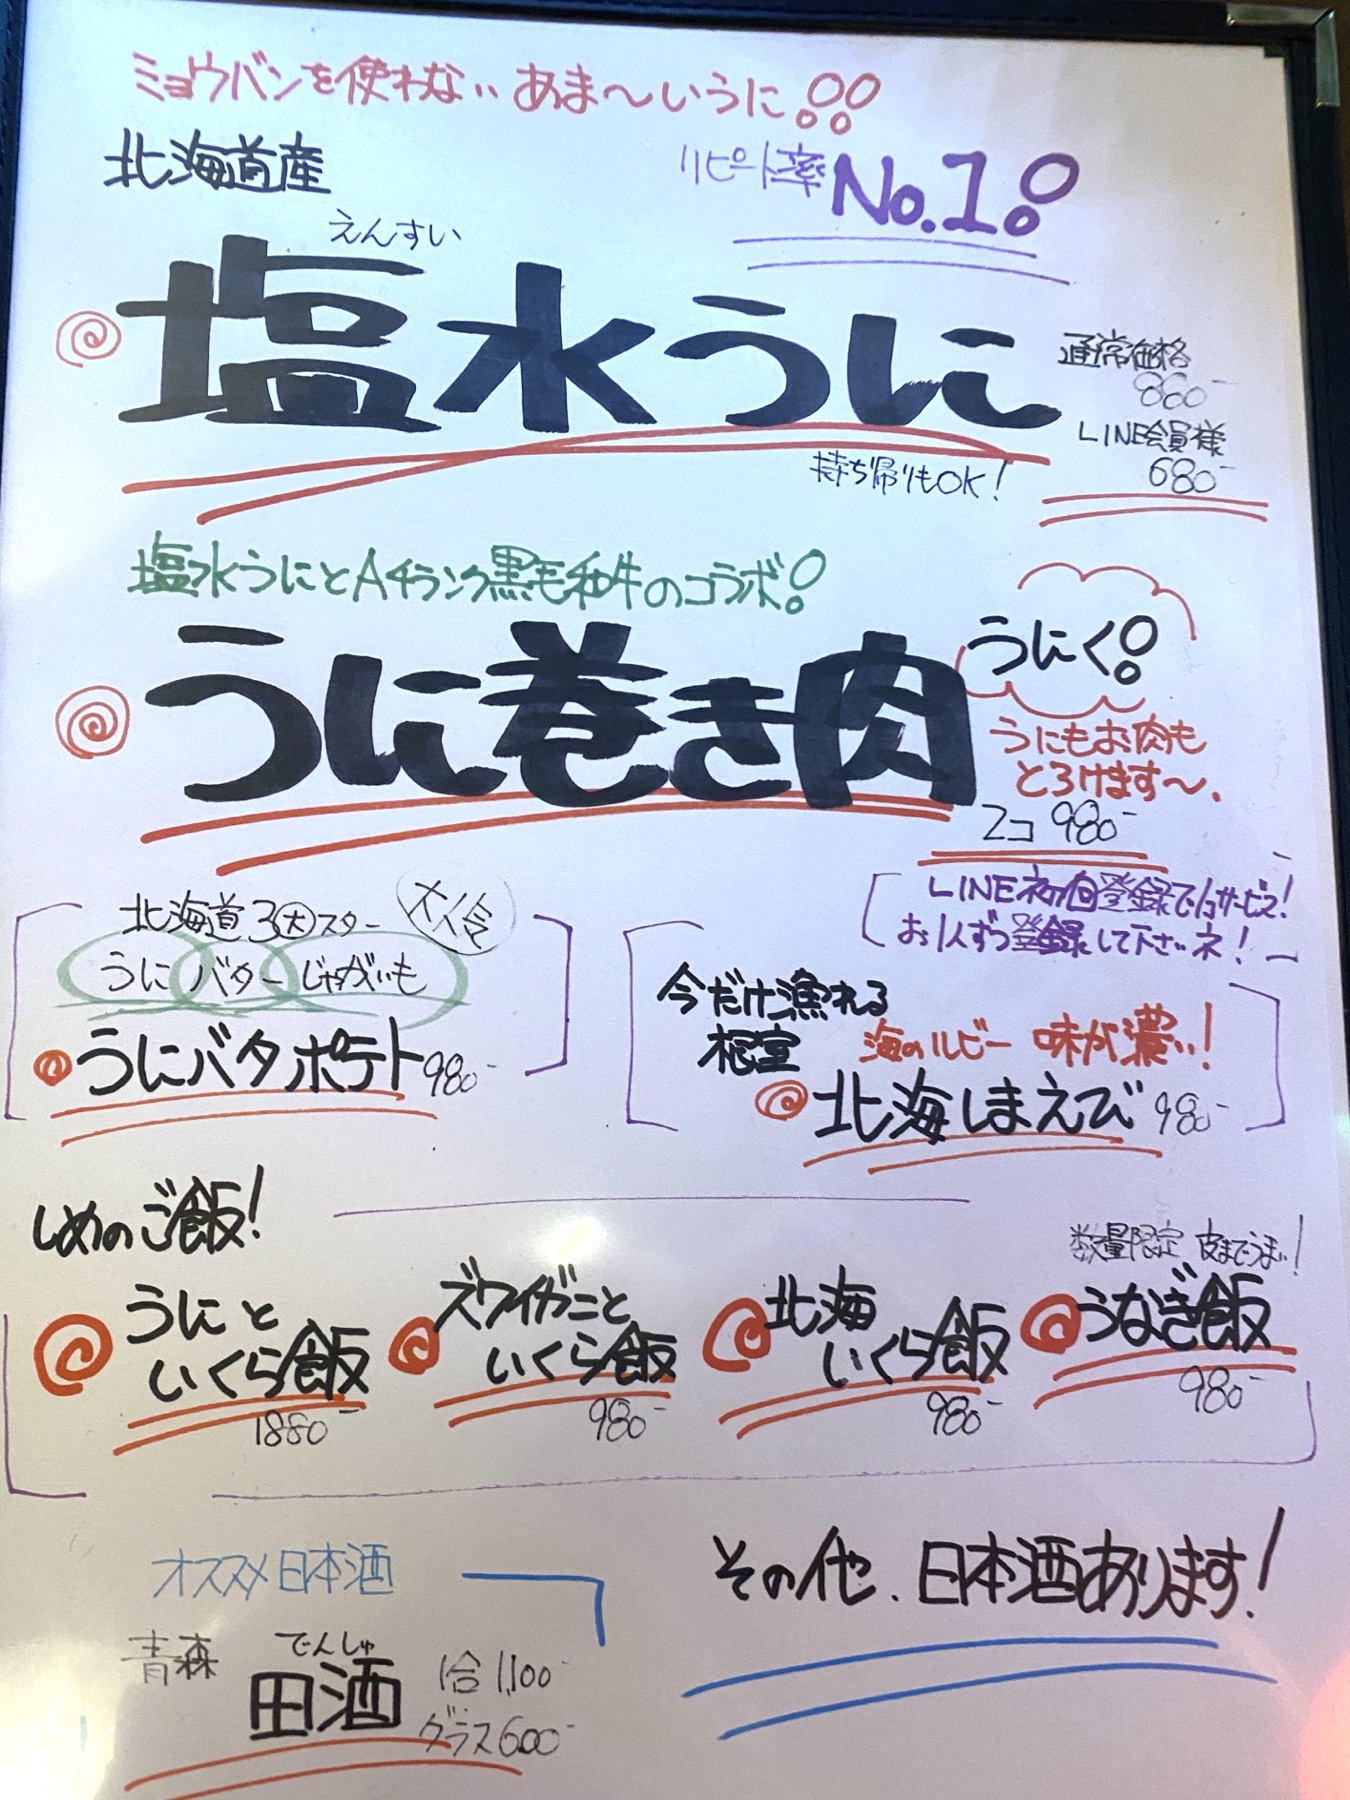 ミョウバンを使わない あま〜いうに!!
北海道産
リピート率 No.1!
えんすい
塩水うに
通常価格
880-
LINE会員様
680-
持ち帰りもOK!
塩水うにとA4ランク黒毛和牛のコラボ!
うに巻き肉
うにく!
うにもお肉も
とろけます〜.
2コ 980-
LINE初回登録で1コサービス!
お1人ずつ登録して下さいネ!
北海道3大スター
大人気
うに バター じゃがいも
うにバタポテト 980-
今だけ漁れる
根室
海のルビー 味が濃い!
北海しまえび 980-
しめのご飯!
うにと
いくら飯
1880-
ズワイガニと
いくら飯
980-
北海
いくら飯
980-
数量限定 皮までうまい!
うなぎ飯
980-
オススメ日本酒
青森
でんしゅ
田酒
1合 1,100-
グラス600-
その他、日本酒あります!